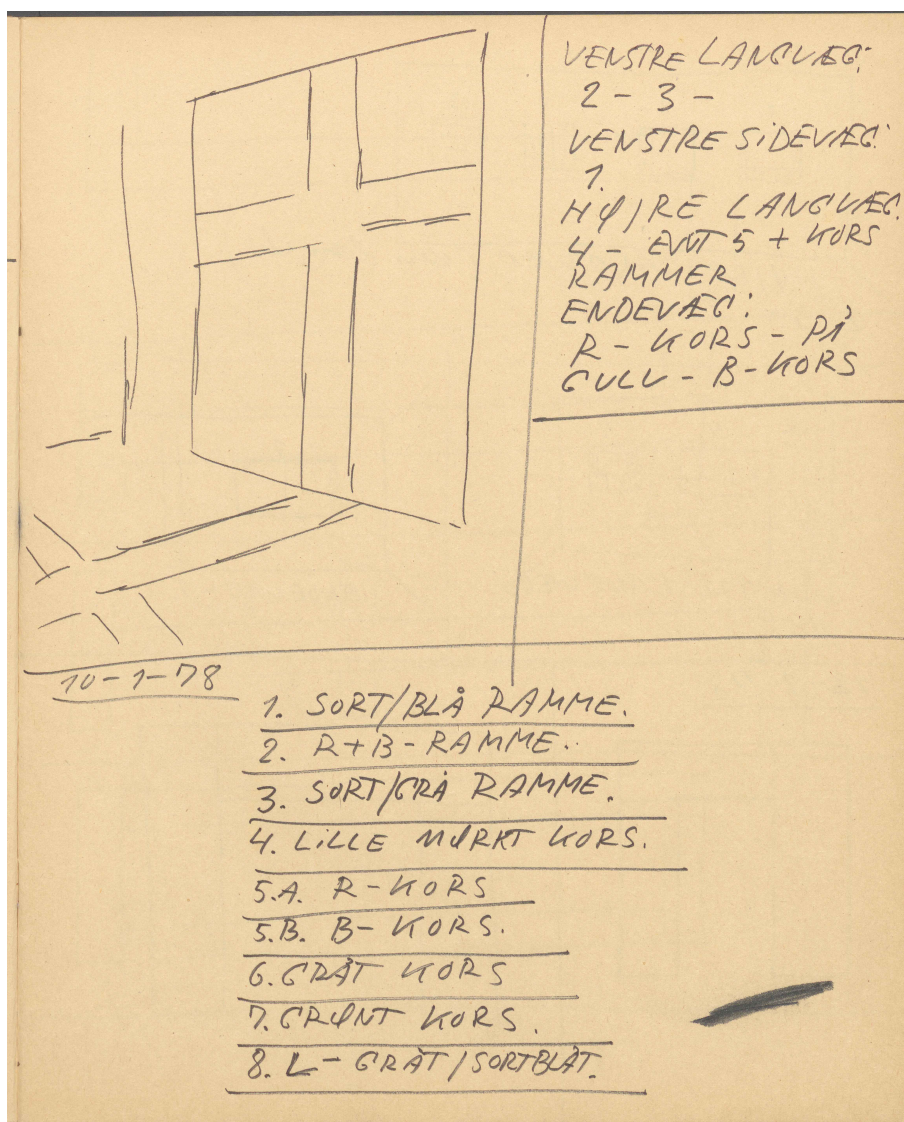 VENSTRE LANGVÆG:
2 - 3 -
VENSTRE SIDEVÆG:
1.
HØJRE LANGVÆG.
4 - EVNT 5 + KORS
RAMMER
ENDEVÆG:
R - KORS - PÅ
GULV - B - KORS
10-1-78
1. SORT/BLÅ RAMME.
2. R+B - RAMME.
3. SORT/GRÅ RAMME.
4. LILLE MØRKT KORS.
5.A. R - KORS
5.B. B - KORS.
6. GRÅT KORS
7. GRØNT KORS.
8. L - GRÅT / SORTBLÅT.